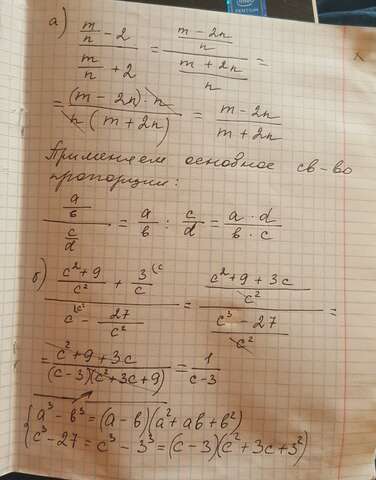 а) (m/n - 2)/(m/n + 2) = ((m - 2n)/n)/((m + 2n)/n) =
= ((m - 2n) · n)/(n (m + 2n)) = (m - 2n)/(m + 2n)
Применяем основное св-во
пропорции:
(a/b)/(c/d) = a/b : c/d = (a · d)/(b · c)
б) ((c²+9)/c² + 3/c)/(c - 27/c²) = ((c²+9+3c)/c²)/((c³-27)/c²) =
= (c²+9+3c)/((c-3)(c²+3c+9)) = 1/(c-3)
{a³ - b³ = (a-b)(a²+ab+b²)
{c³-27 = c³-3³ = (c-3)(c²+3c+3²)